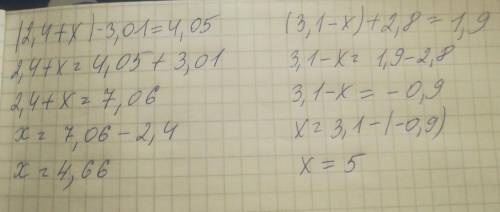 |2,4+x)-3,01=4,05
2,4+x=4,05+3,01
2,4+x=7,06
x=7,06-2,4
x=4,66
(3,1-x)+2,8=1,9
3,1-x=1,9-2,8
3,1-x=-0,9
x=3,1-(-0,9)
x=5